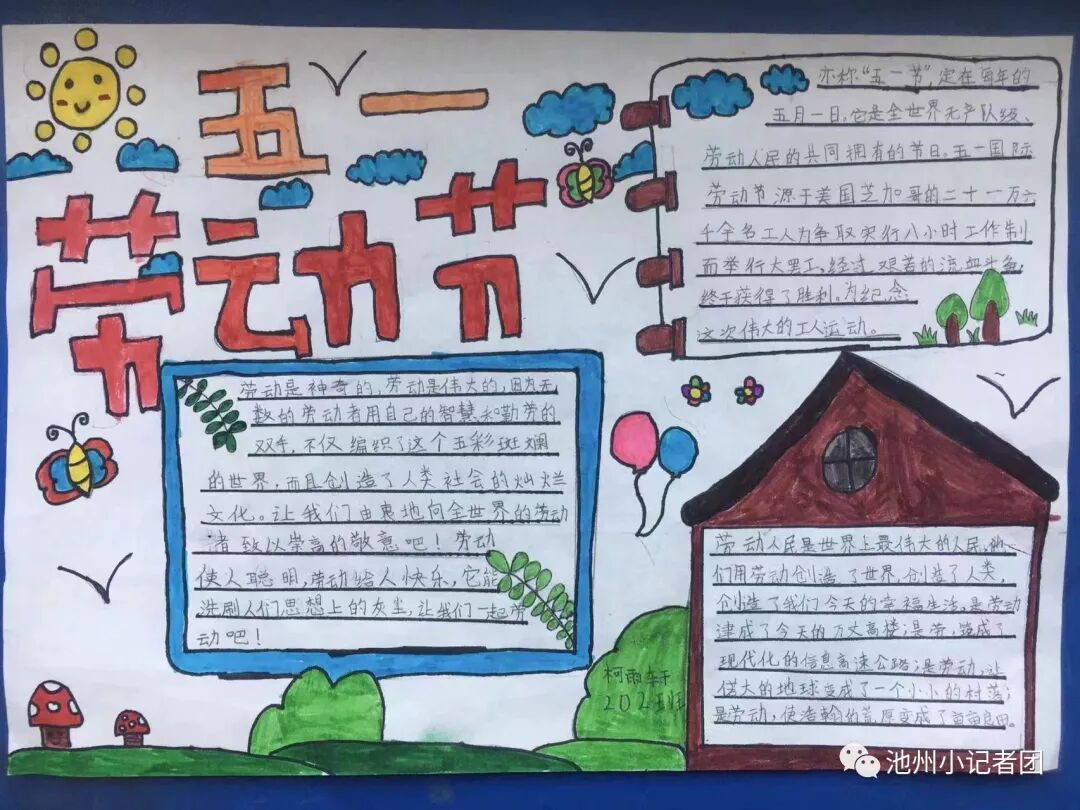 五一
劳动节
亦称“五一节”,定在每年的
五月一日。它是全世界无产队级、
劳动人民的共同拥有的节日。五一国际
劳动节源于美国芝加哥的二十一万六
千余名工人为争取实行八小时工作制
而举行大罢工。经过艰苦的流血斗争,
终于获得了胜利。为纪念
这次伟大的工人运动。
劳动是神奇的,劳动是伟大的,因为无
数的劳动者用自己的智慧和勤劳的
双手,不仅编织了这个五彩斑斓
的世界,而且创造了人类社会的灿烂
文化。让我们由衷地向全世界的劳动
者致以崇高的敬意吧!劳动
使人聪明,劳动给人快乐,它能
洗刷人们思想上的灰尘,让我们一起劳
动吧!
劳动人民是世界上最伟大的人民,他
们用劳动创造了世界,创造了人类,
创造了我们今天的幸福生活。是劳动
建成了今天的万丈高楼;是劳,筑成了
现代化的信息高速公路;是劳动,让
偌大的地球变成了一个小小的村落;
是劳动,使浩翰的荒原变成了亩亩良田。
柯雨
202班
池州小记者团